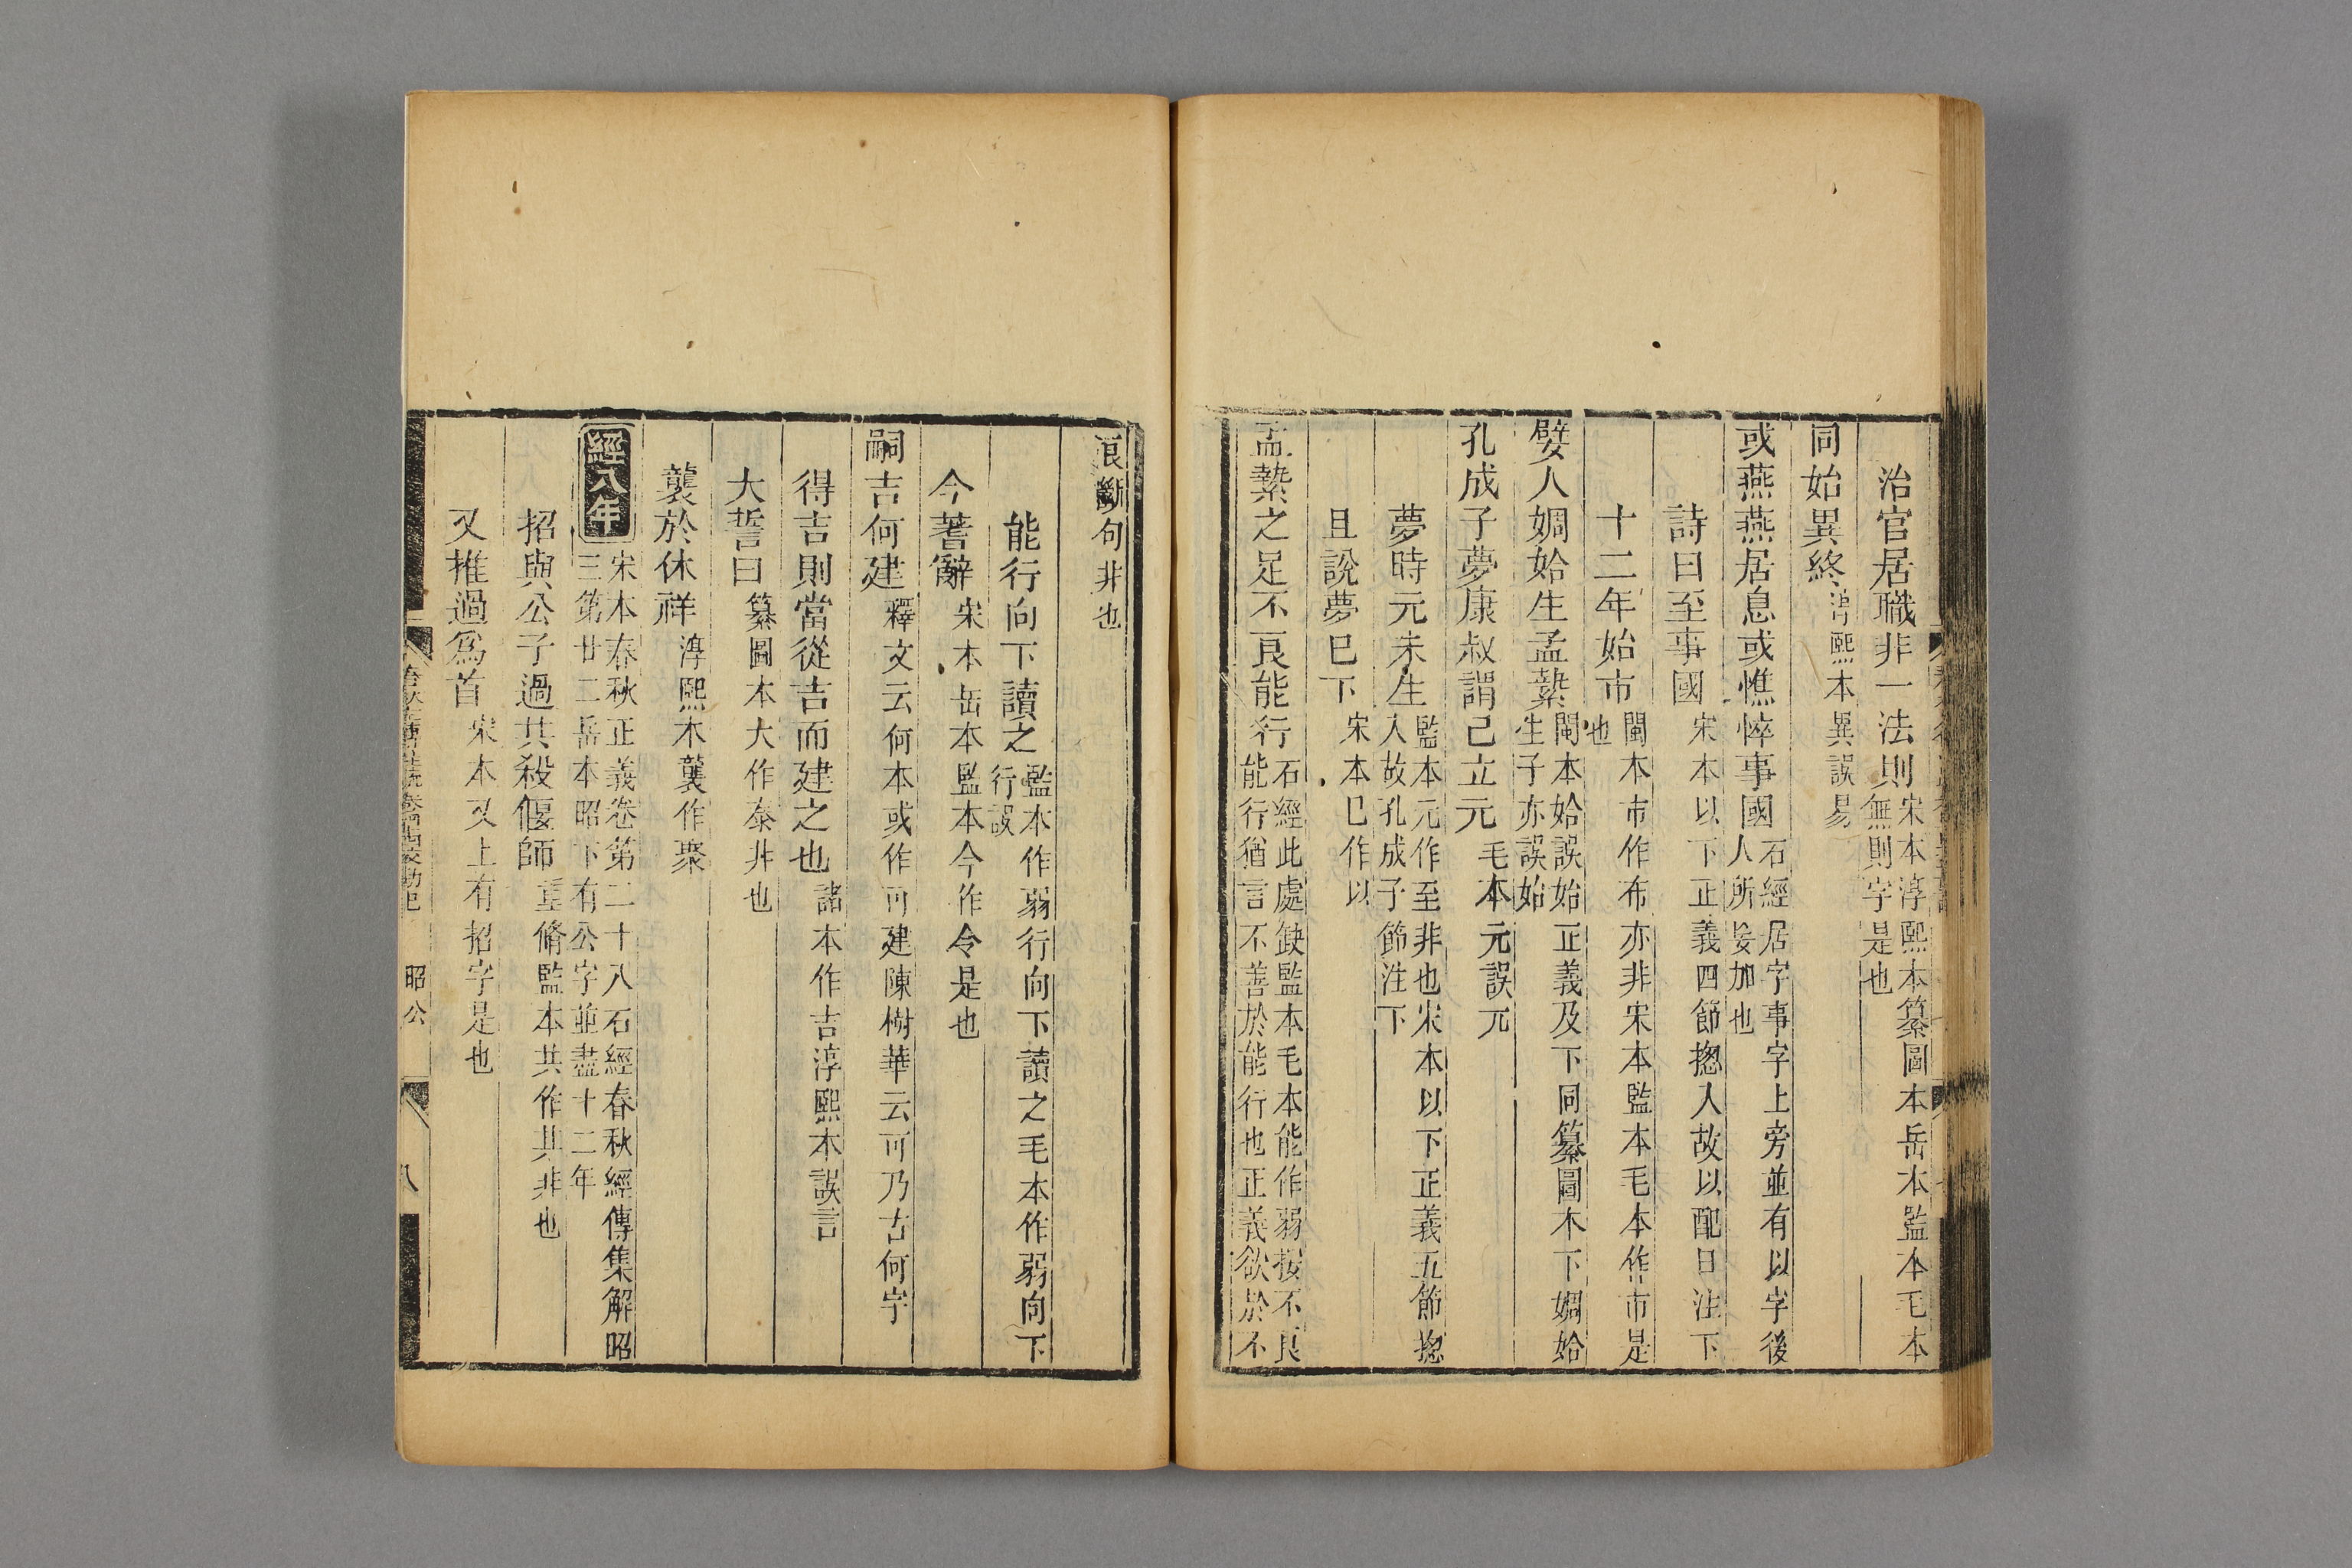 治官居職非一法則宋本淳熙本纂圖本岳本監本毛本無則字是也
同始異終淳熙本異誤易
或燕燕居息或憔悴事國石經居字事字上旁並有以字後人所妄加也
詩曰至事國宋本以下正義四節揔入故以配日注下
十二年始市閩本市作布亦非宋本監本毛本作市是也
嬖人婤姶生孟縶閩本姶誤始正義及下同纂圖本下婤姶生子亦誤始
孔成子夢康叔謂己立元毛本元誤元
夢時元未生監本元作至非也宋本以下正義五節揔入故孔成子節注下
且說夢巳下宋本巳作以
孟縶之足不良能行石經此處缺監本毛本能作弱按不良能行猶言不善於能行也正義欲於不
良斷句非也
能行向下讀之監本作弱行向下讀之毛本作弱向下行誤
今蓍辭宋本岳本監本今作令是也
嗣吉何建釋文云何本或作可建陳樹華云可乃古何字
得吉則當從吉而建之也諸本作吉淳熙本誤言
大誓曰纂圖本大作泰非也
襲於休祥淳熙本襲作聚
經八年宋本春秋正義卷第二十八石經春秋經傳集解昭三第廿二岳本昭下有公字並盡十二年
招與公子過共殺偃師重脩監本共作其非也
又推過為首宋本又上有招字是也
昭公
八